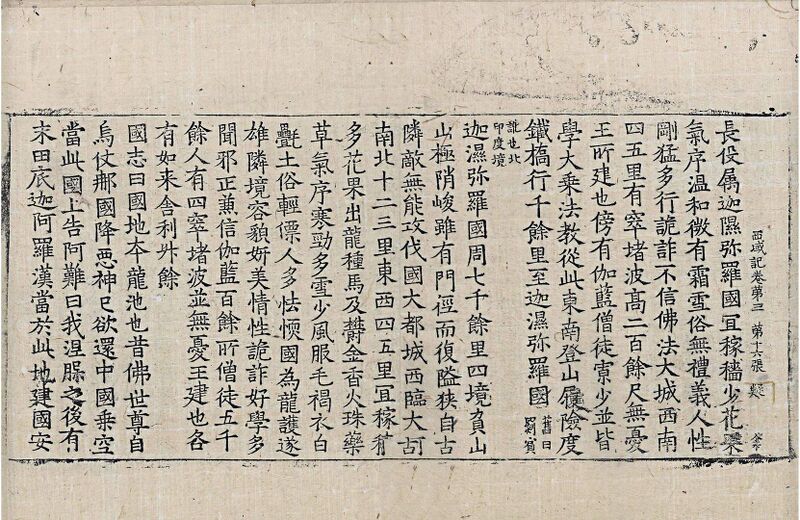 西域記卷第三 第十六張
長役屬迦濕弥羅國冝稼穡少花果
氣序溫和微有霜雪俗無禮義人性
剛猛多行詭詐不信佛法大城西南
四五里有窣堵波高二百餘尺無憂
王所建也傍有伽藍僧徒寡少並皆
學大乘法教從此東南登山履險度
鐵橋行千餘里至迦濕弥羅國舊曰罽賓
訛也北印度境
迦濕弥羅國周七千餘里四境負山
山極陗峻雖有門徑而復隘狹自古
隣敵無能攻伐國大都城西臨大河
南北十二三里東西四五里冝稼穡
多花果出龍種馬及鬱金香火珠藥
草氣序寒勁多雪少風服毛褐衣白
㲲土俗輕僄人多怯愞國為龍護遂
雄隣境容貌妍美情性詭詐好學多
聞邪正兼信伽藍百餘所僧徒五千
餘人有四窣堵波並無憂王建也各
有如来舍利升餘
國志曰國地本龍池也昔佛世尊自
烏仗那國降惡神已欲還中國乘空
當此國上告阿難曰我涅槃之後有
末田底迦阿羅漢當於此地建國安